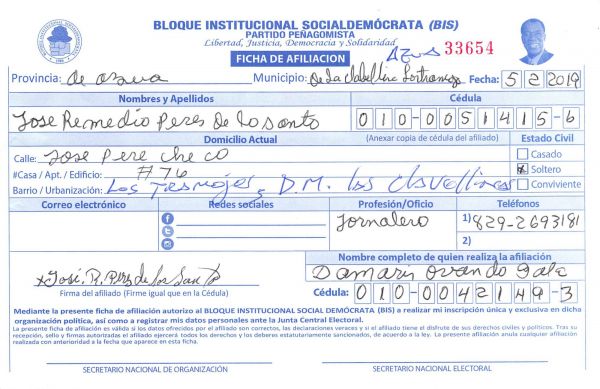 BLOQUE INSTITUCIONAL SOCIALDEMÓCRATA (BIS)
PARTIDO PEÑAGOMISTA
Libertad, Justicia, Democracia y Solidaridad
FICHA DE AFILIACION Azua 33654
Provincia: de azua Municipio: De La Clabellina Fecha: 5 2 2019
Nombres y Apellidos Cédula
Jose Remedio Peres De Losanto 010-0051415-6
Domicilio Actual (Anexar copia de cédula del afiliado) Estado Civil
Calle: Jose Pere Che co Casado
#Casa / Apt. / Edificio: #76 Soltero
Barrio / Urbanización: Los Tresmojes, D.M. las Clavellinas Conviviente
Correo electrónico Redes sociales Profesión/Oficio Teléfonos
Jornalero 1) 829-2693181
2)
Nombre completo de quien realiza el afiliación
x José. R. Pérez de los Santo Damaris Ovando Gala
Firma del afiliado (Firme igual que en la Cédula) Cédula: 010-0042149-3
Mediante la presente ficha de afiliación autorizo al BLOQUE INSTITUCIONAL SOCIAL DEMÓCRATA (BIS) a realizar mi inscripción única y exclusiva en dicha
organización política, así como a registrar mis datos personales ante la Junta Central Electoral.
La presente ficha de afiliación es válida si los datos ofrecidos por el afiliado son correctos, las declaraciones veraces y si el afiliado tiene el disfrute de sus derechos civiles y políticos. Tras su
recepción, sello y firmas autorizadas el afiliado ejercerá todos los derechos y los deberes estatutariamente sancionados, de acuerdo a la ley. La presente afiliación anula cualquier afiliación
realizada con anterioridad a la fecha que aparece en esta ficha.
SECRETARIO NACIONAL DE ORGANIZACIÓN SECRETARIO NACIONAL ELECTORAL